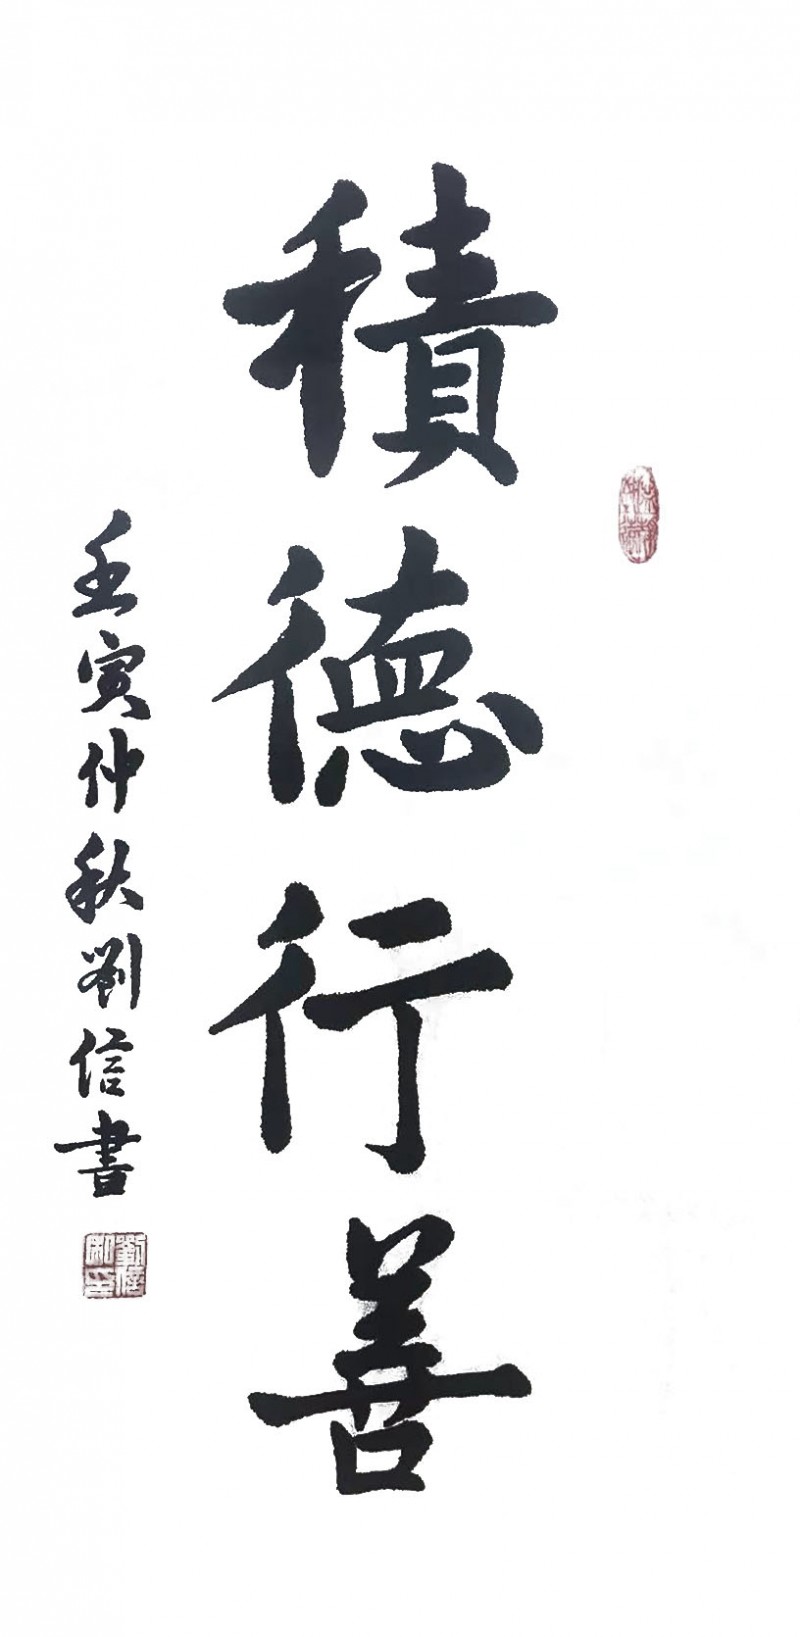 積德行善
壬寅仲秋劉信書